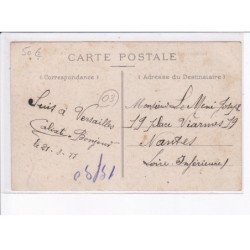 50 €
CARTE POSTALE
(Correspondance)
(Adresse du Destinataire)
03
Suis à Versailles
Bonjour
Monsieur Le Mené Joseph
19 place Viarmes 19
Nantes
Loire Inférieure